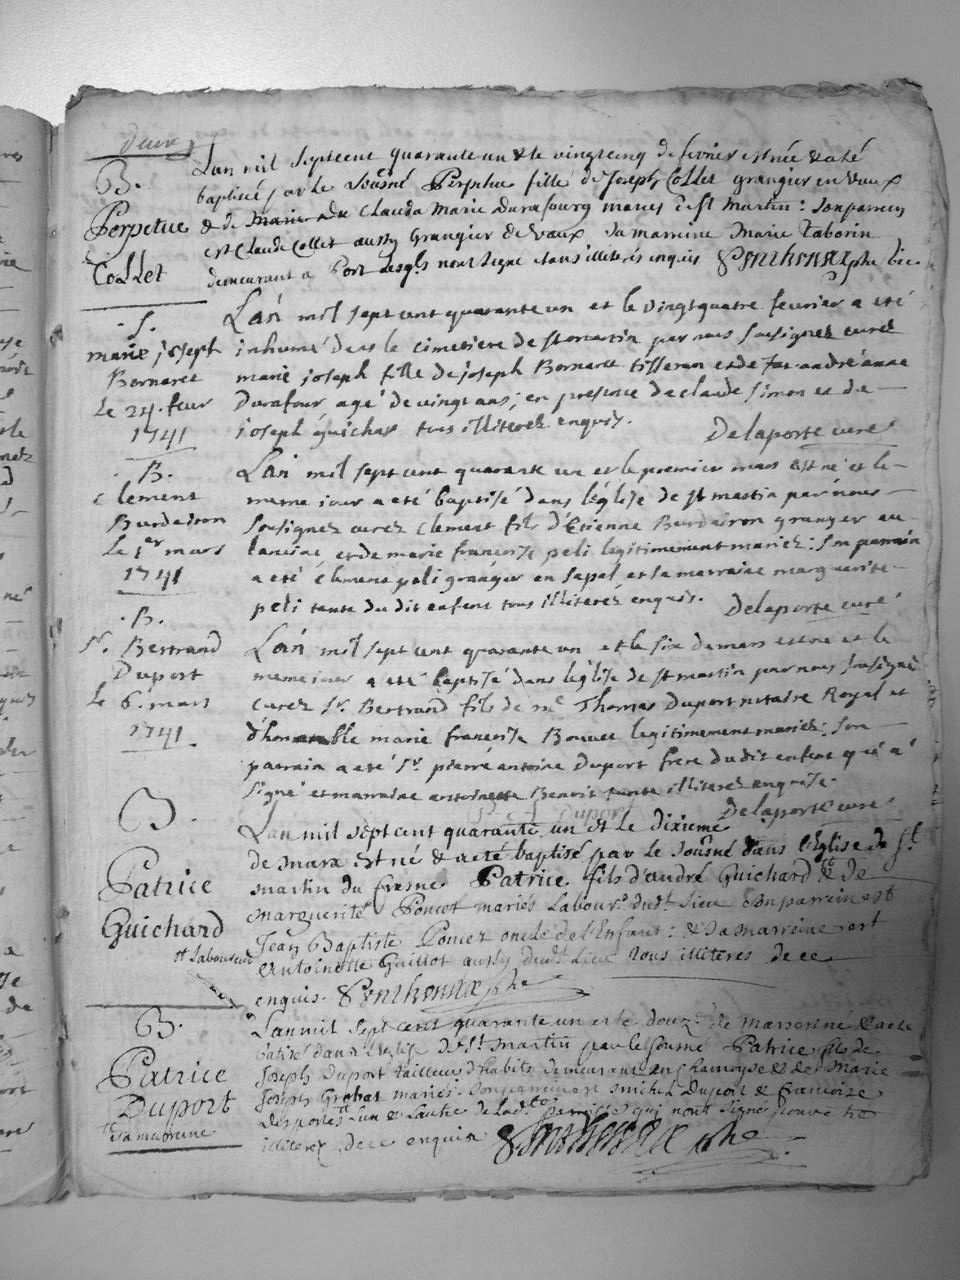 deux
B.
Perpetue
Collet
L'an mil septcent quarante un & le vingtcinq de fevrier est née & a été
baptisée par le sousné Perpetue fille de Joseph Collet grangier en Vaux
& de Clauda Marie Durafourg mariés de St Martin : son parrein
est Claude Collet aussy Grangier de Vaux sa marreine Marie Taborin
demeurant a Port lesqls nont signé etans illiterés enquis
S.
marie joseph
Bornaret
Le 24. feur
1741
L'an mil sept cent quarante un et le vingtquatre feuvrier a eté
inhumé dans le cimetiere de st martin par nous soussignez curez
marie joseph fille de joseph Bornaret tisseran et de andré anne
Durafour agé de vingt ans ; en presence de claude simon et de
joseph guichar tous illiterez enquis.
Delaporte curé
B.
Clement
Burdairon
Le 1er mars
1741
L'an mil sept cent quarante un et le premier mars est né et le
meme jour a eté baptisé dans léglise de st martin par nous
soussignez curez clement fils d'Etienne Burdairon granger au
et de marie francoise peli legitimement mariez : son parrain
a eté clement peli granger en sapel et sa marraine marguerite
peli tante du dit enfent tous illiterez enquis.
Delaporte curé
B.
Sr. Bertrand
Duport
Le 6. mars
1741
L'an mil sept cent quarante un et le six de mars est né et le
meme jour a eté baptisé dans léglise de st martin par nous soussigné
curez Sr. Bertrand fils de me. Thomas Duport notaire Royal et
d'honorable marie francoise Bouvet legitimement mariez : son
parrain a eté Sr. pierre antoine Duport frere du dit enfent qui a
signé et marraine antoinette Benoit illiterez enquise.
Duport
Delaporte curé
B.
Patrice
Guichard
laboureur
L'an mil sept cent quarante un et le dixieme
de mars est né & a eté baptisé par le sousné dans l'Eglise de St.
martin du fresne Patrice fils d'andré Guichard & de
marguerite Poncet mariés Labourrs dudt. Lieu son parrein est
Jean Baptiste Poncet oncle de l'Enfant : & sa marreine est
Antoinette Guillot aussy dudt. Lieu tous illiteres de ce
enquis.
B.
Patrice
Duport
L'an mil sept cent quarante un et le douze de mars est né & a eté
batisé dans l'eglise de St. Martin par le sousné Patrice fils de
Joseph Duport tailleur d'habits demeurant en Chamoyse & de Marie
Joseph Grobat mariés. son parrein est michel Duport & francoise
Desportes l'un & l'autre de ladte. parroisse qui nont signé pour etre
illiterez, de ce enquis